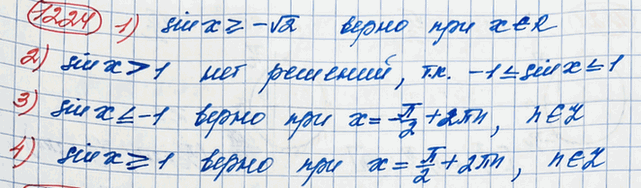 1224 1) sin x ≥ -√2 верно при x∈R
2) sin x > 1 нет решений, т.к. -1 ≤ sin x ≤ 1
3) sin x ≤ -1 верно при x = -π/2 + 2πn, n∈Z
4) sin x ≥ 1 верно при x = π/2 + 2πn, n∈Z